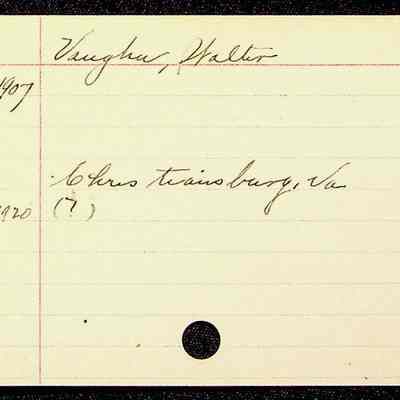 Vaughn, Walter
1907
Christiansburg, Va
1920 (?)